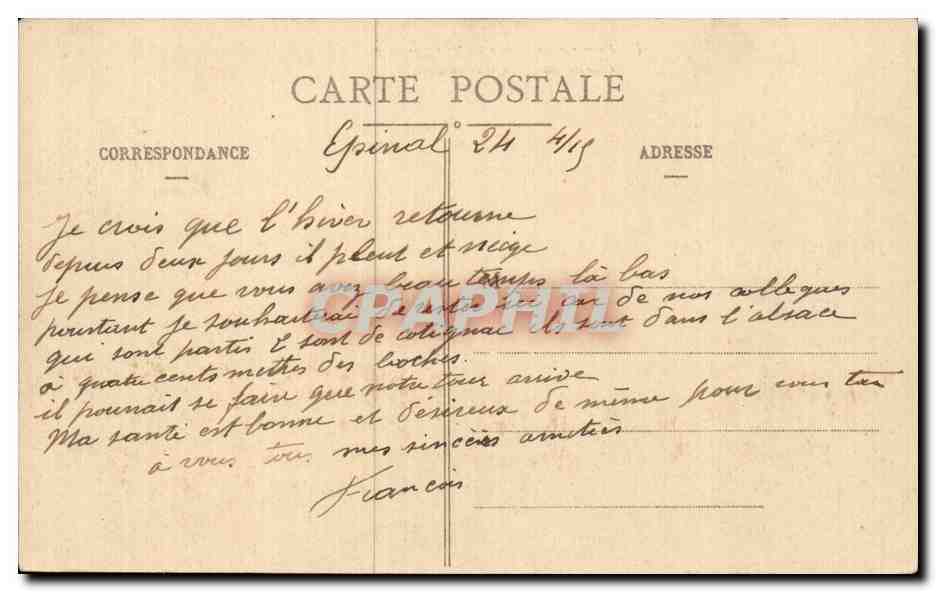 CARTE POSTALE
Epinal 24 4/15
CORRESPONDANCE
ADRESSE
Je crois que l'hiver retourne
depuis deux jours il pleut et neige
Je pense que vous avez beau temps là bas
pourtant je souhaiterai de rester ici car de nos collegues
qui sont partis E sont de cotignac ils sont dans l'alsace
a quatre cents mettres des boches.
il pourrait se faire que notre tour arrive
Ma santé est bonne et désireux de même pour vous tous
à vous tous mes sincères amitiés
François
CPAPHIL